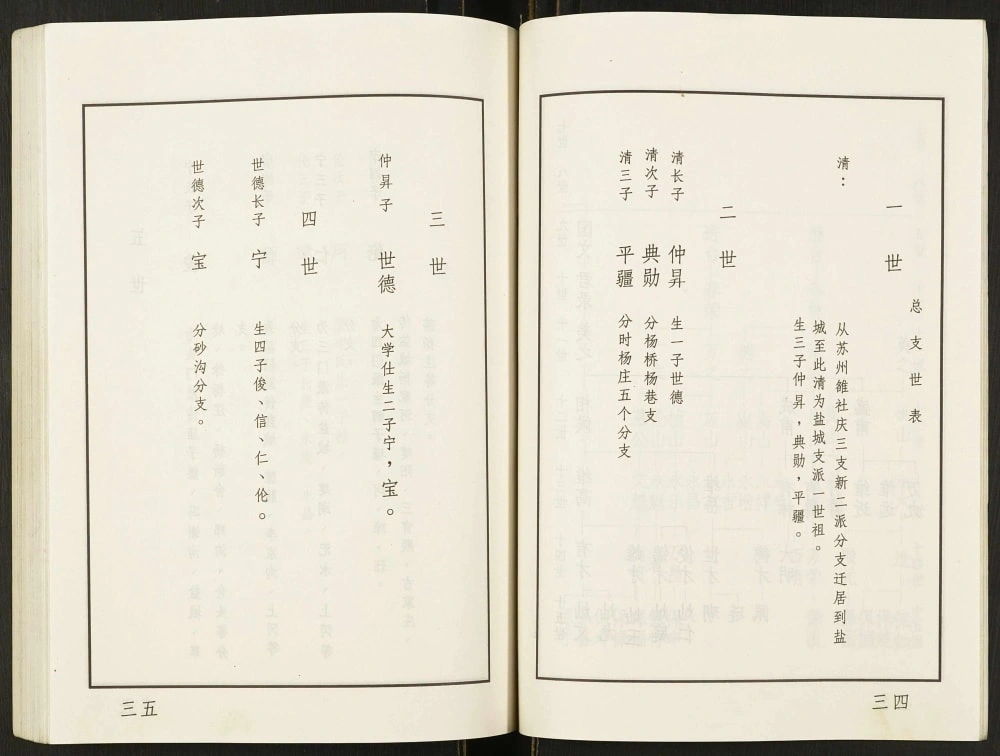 总支世表
一世
清：
从苏州雒社庆三支新二派分支迁居到盐
城至此清为盐城支派一世祖。
生三子仲昇，典勋，平疆。
二世
清长子 仲昇 生一子世德
清次子 典勋 分杨桥杨巷支
清三子 平疆 分时杨庄五个分支
三四
三世
仲昇子 世德 大学仕生二子宁，宝。
四世
世德长子 宁 生四子俊、信、仁、伦。
世德次子 宝 分砂沟分支。
三五